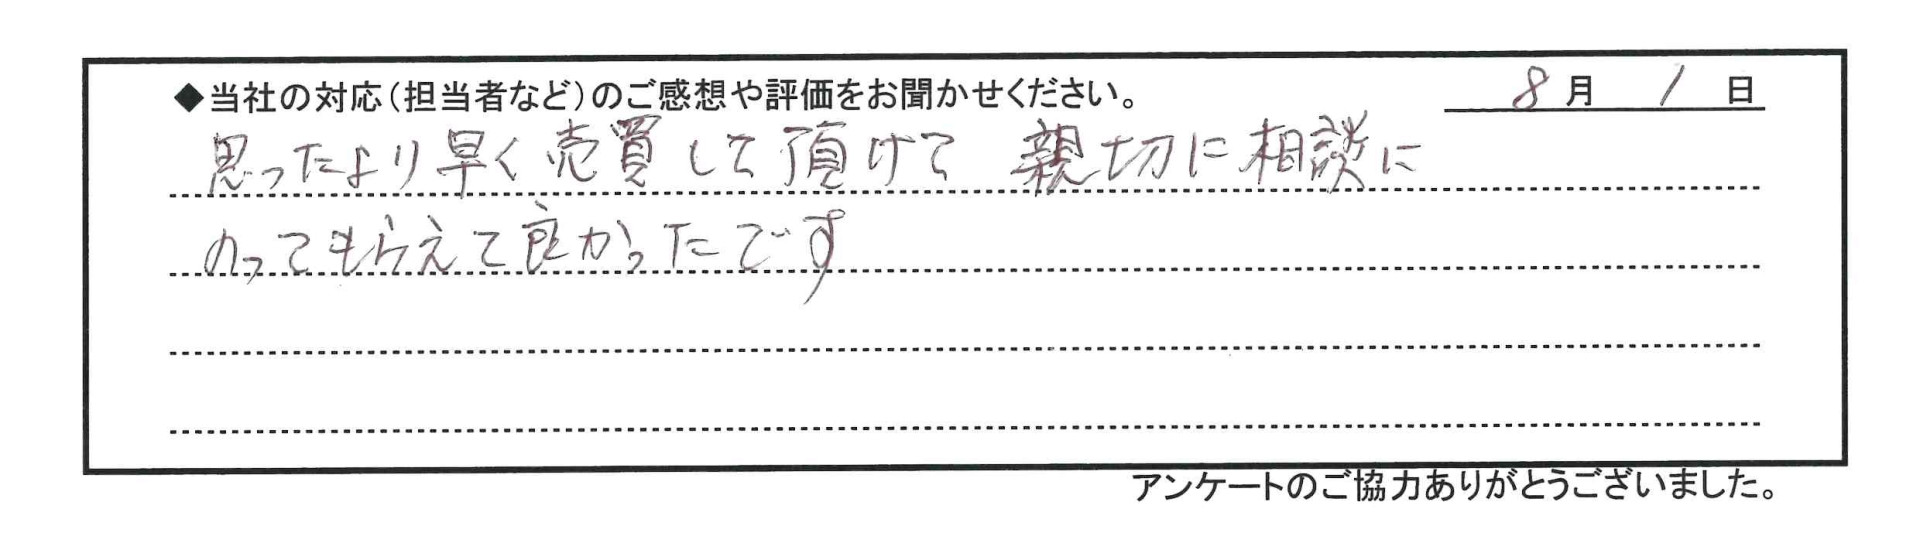 ◆当社の対応(担当者など)のご感想や評価をお聞かせください。 8月 1日
思ったより早く売買して頂けて 親切に相談に
のってもらえて良かったです
アンケートのご協力ありがとうございました。